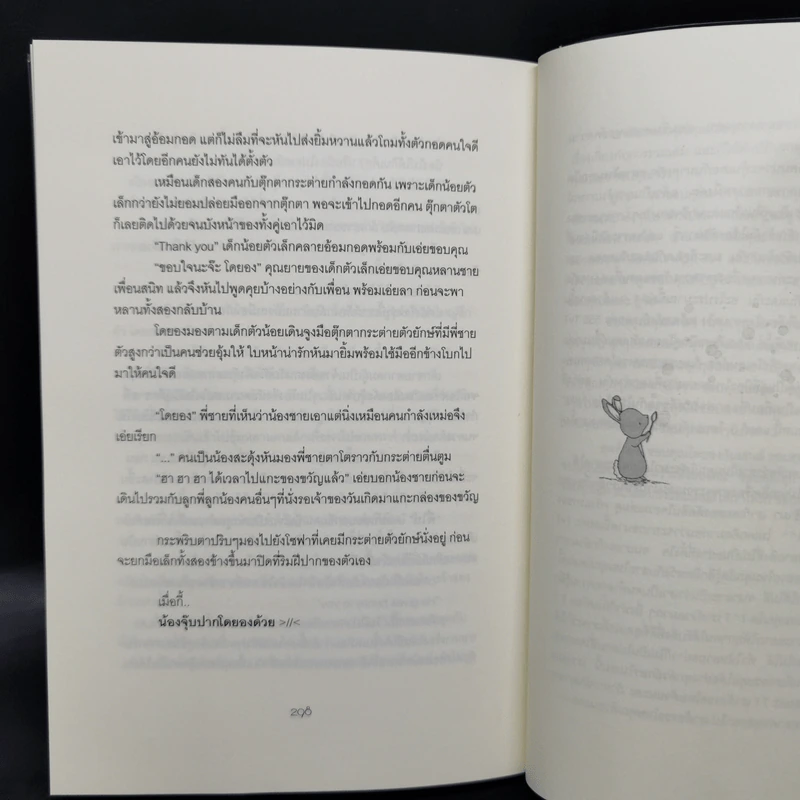 เข้ามาสู่อ้อมกอด แต่ก็ไม่ลืมที่จะหันไปส่งยิ้มหวานแล้วโถมทั้งตัวกอดคนใจดี
เอาไว้โดยอีกคนยังไม่ทันได้ตั้งตัว
เหมือนเด็กสองคนกับตุ๊กตากระต่ายกำลังกอดกัน เพราะเด็กน้อยตัว
เล็กกว่ายังไม่ยอมปล่อยมือออกจากตุ๊กตา พอจะเข้าไปกอดอีกคน ตุ๊กตาตัวโต
ก็เลยติดไปด้วยจนบังหน้าของทั้งคู่เอาไว้มิด
“Thank you” เด็กน้อยตัวเล็กคลายอ้อมกอดพร้อมกับเอ่ยขอบคุณ
“ขอบใจนะจ๊ะ โดยอง” คุณยายของเด็กตัวเล็กเอ่ยขอบคุณหลานชาย
เพื่อนสนิท แล้วจึงหันไปพูดคุยบ้างอย่างกับเพื่อน พร้อมเอ่ยลา ก่อนจะพา
หลานทั้งสองกลับบ้าน
โดยองมองตามเด็กตัวน้อยเดินจูงมือตุ๊กตากระต่ายตัวยักษ์ที่มีพี่ชาย
ตัวสูงกว่าเป็นคนช่วยอุ้มให้ ใบหน้าน่ารักหันมายิ้มพร้อมใช้มืออีกข้างโบกไป
มาให้คนใจดี
“โดยอง” พี่ชายที่เห็นว่าน้องชายเอาแต่นิ่งเหมือนคนกำลังเหม่อจึง
เอ่ยเรียก
“...” คนเป็นน้องสะดุ้งหันมองพี่ชายตาโตราวกับกระต่ายตื่นตูม
“ฮา ฮา ฮา ได้เวลาไปแกะของขวัญแล้ว” เอ่ยบอกน้องชายก่อนจะ
เดินไปรวมกับลูกพี่ลูกน้องคนอื่นๆที่นั่งรอเจ้าของวันเกิดมาแกะกล่องของขวัญ
กระพริบตาปริบๆมองไปยังโซฟาที่เคยมีกระต่ายตัวยักษ์นั่งอยู่ ก่อน
จะยกมือเล็กทั้งสองข้างขึ้นมาปิดที่ริมฝีปากของตัวเอง
เมื่อกี้..
น้องจุ๊บปากโดยองด้วย >//<
296